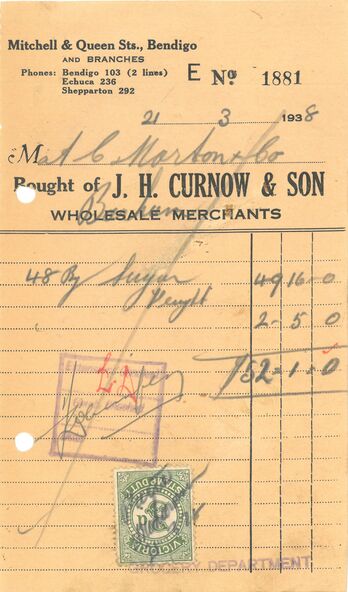 Mitchell & Queen Sts., Bendigo
AND BRANCHES
Phones: Bendigo 103 (2 lines)
Echuca 236
Shepparton 292
E No 1881
21 3 1938
M A C Morton & Co
Bought of J. H. CURNOW & SON
WHOLESALE MERCHANTS
48 Bg Sugar 49 16-0
2-5 0
52-1-0
VICTORIA
STAMP DUTY
GROCERY DEPARTMENT